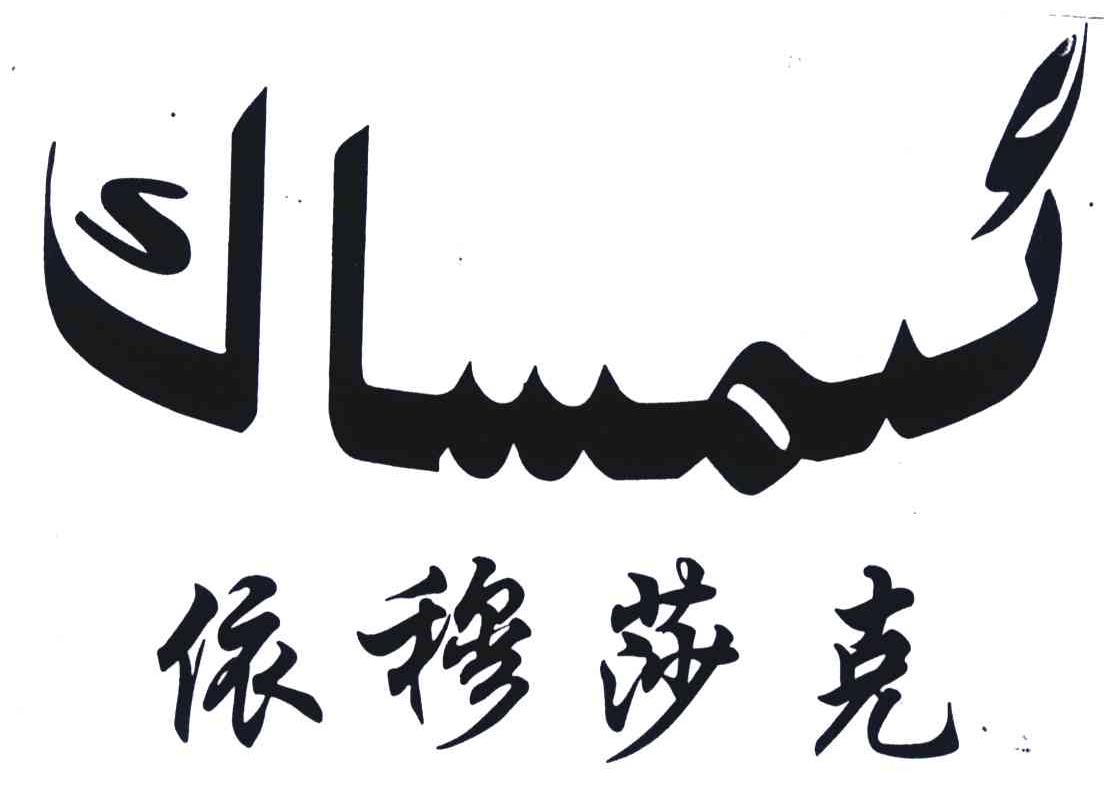 ئىمساك
依穆莎克